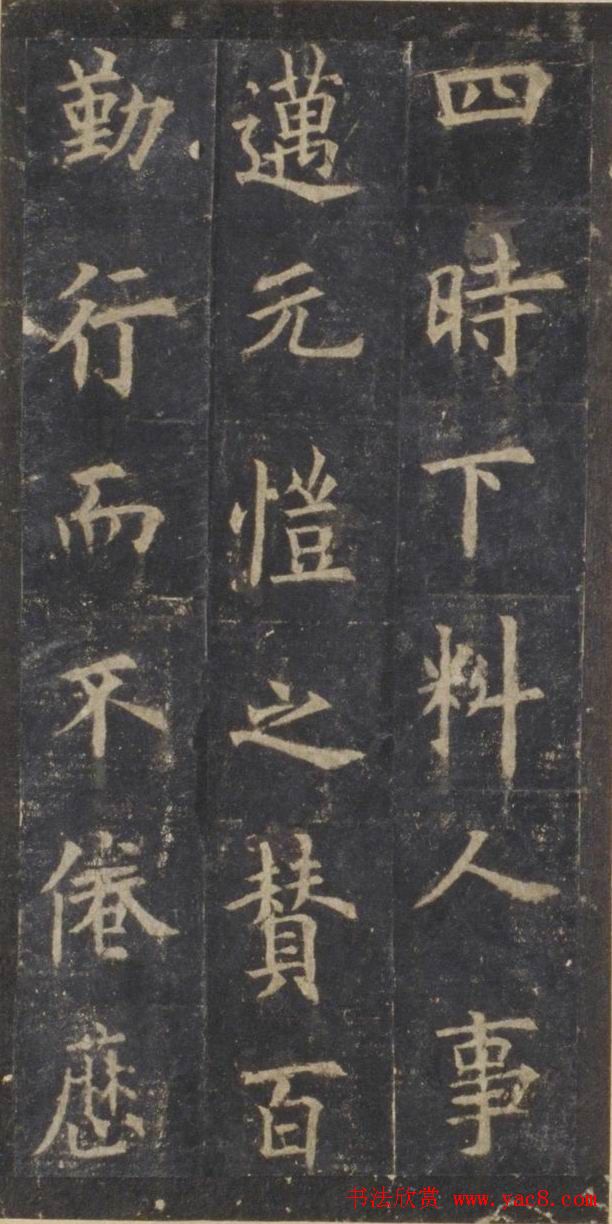 四時下料人事
邁元愷之贊百
勤行而不倦
书法欣赏 www.yac8.com